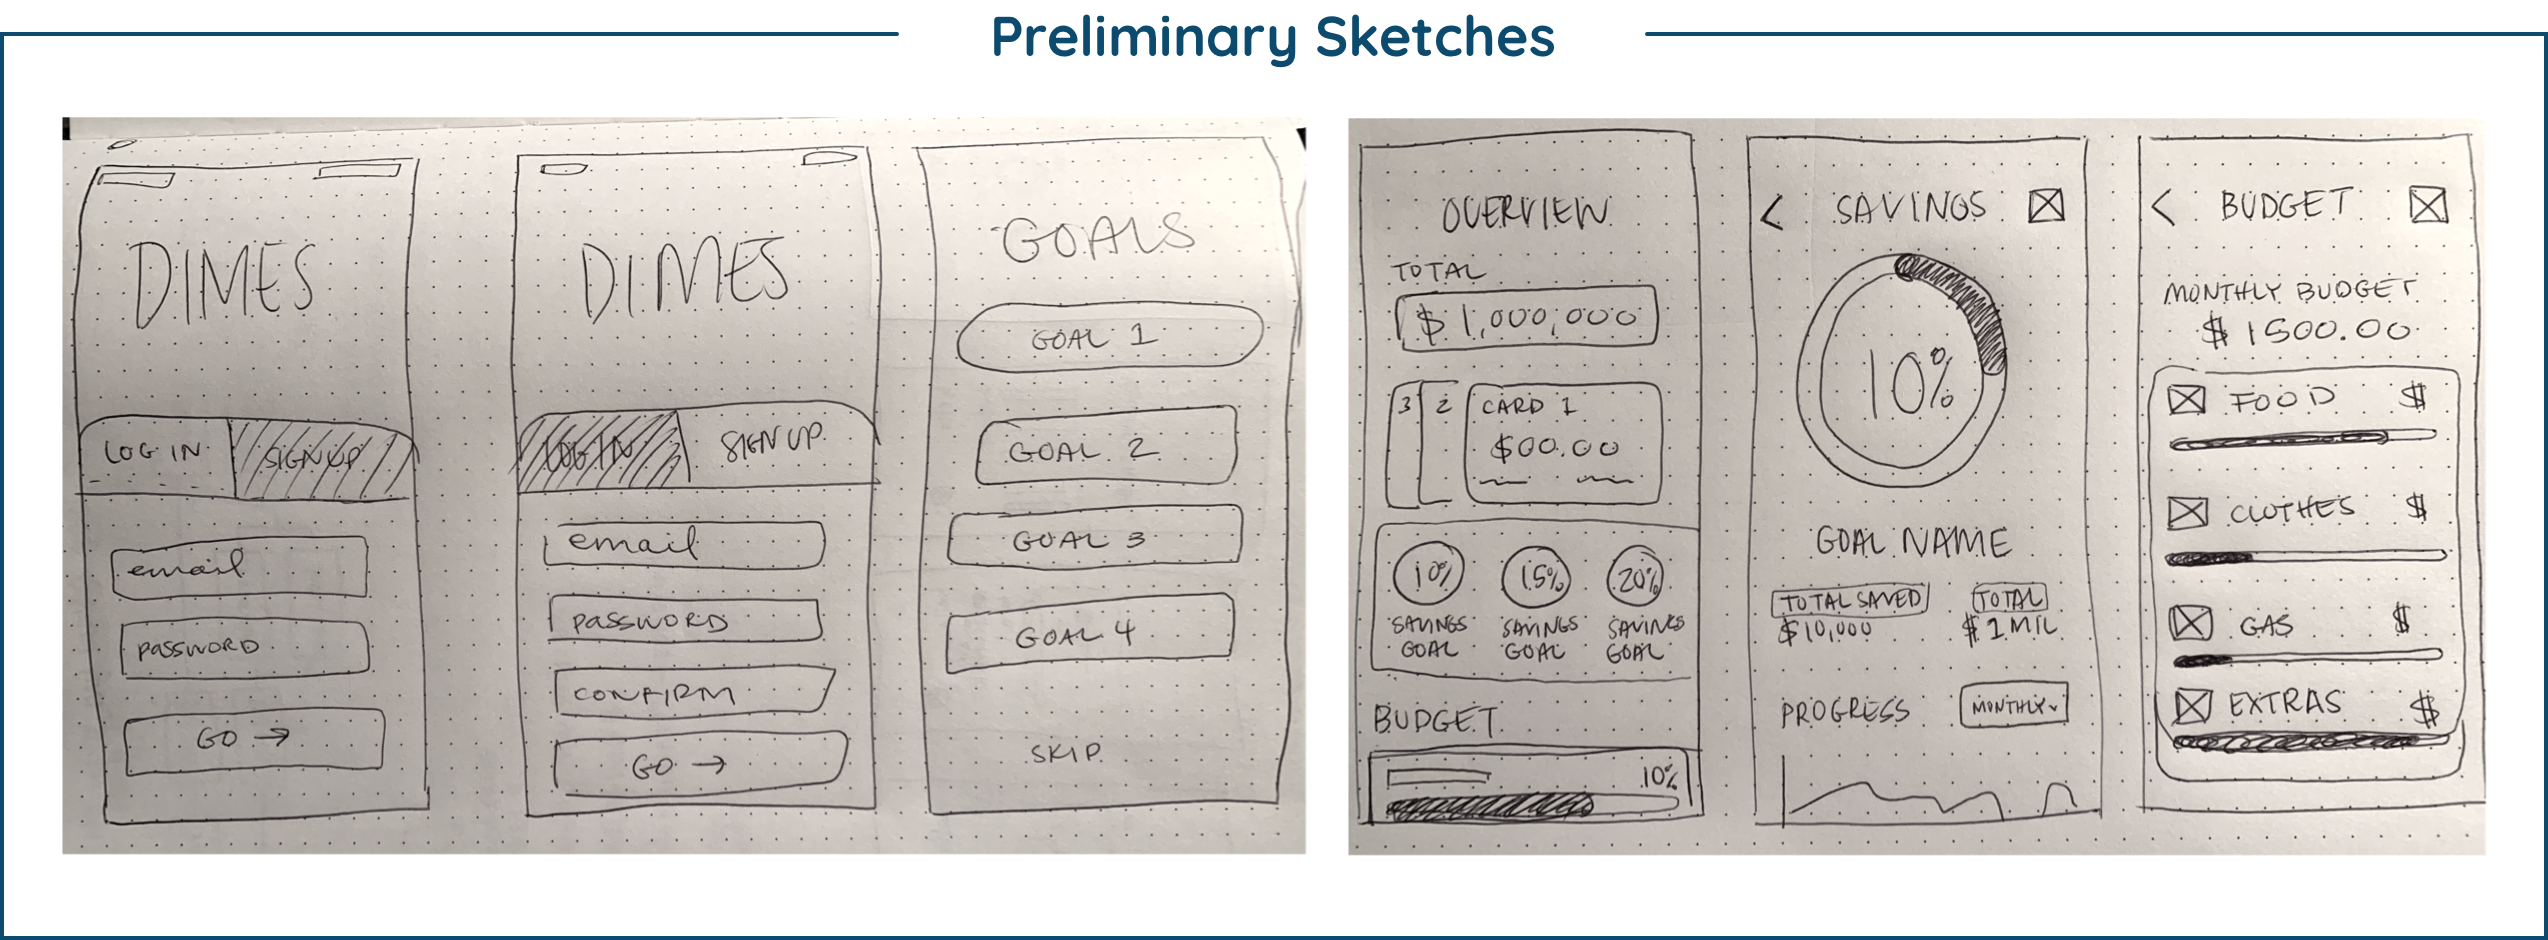 Preliminary Sketches
DIMES
LOG IN
SIGN UP
email
PASSWORD
GO →
DIMES
LOG IN
SIGN UP
email
PASSWORD
CONFIRM
GO →
GOALS
GOAL 1
GOAL 2
GOAL 3
GOAL 4
SKIP
OVERVIEW
TOTAL
$ 1,000,000
3 2 CARD 1
$00.00
10% 15% 20%
SAVINGS GOAL
SAVINGS GOAL
SAVINGS GOAL
BUDGET
10%
< SAVINGS
10%
GOAL NAME
TOTAL SAVED TOTAL
$10,000 $1 MIL
PROGRESS MONTHLY
< BUDGET
MONTHLY BUDGET
$ 1500.00
FOOD $
CLOTHES $
GAS $
EXTRAS $